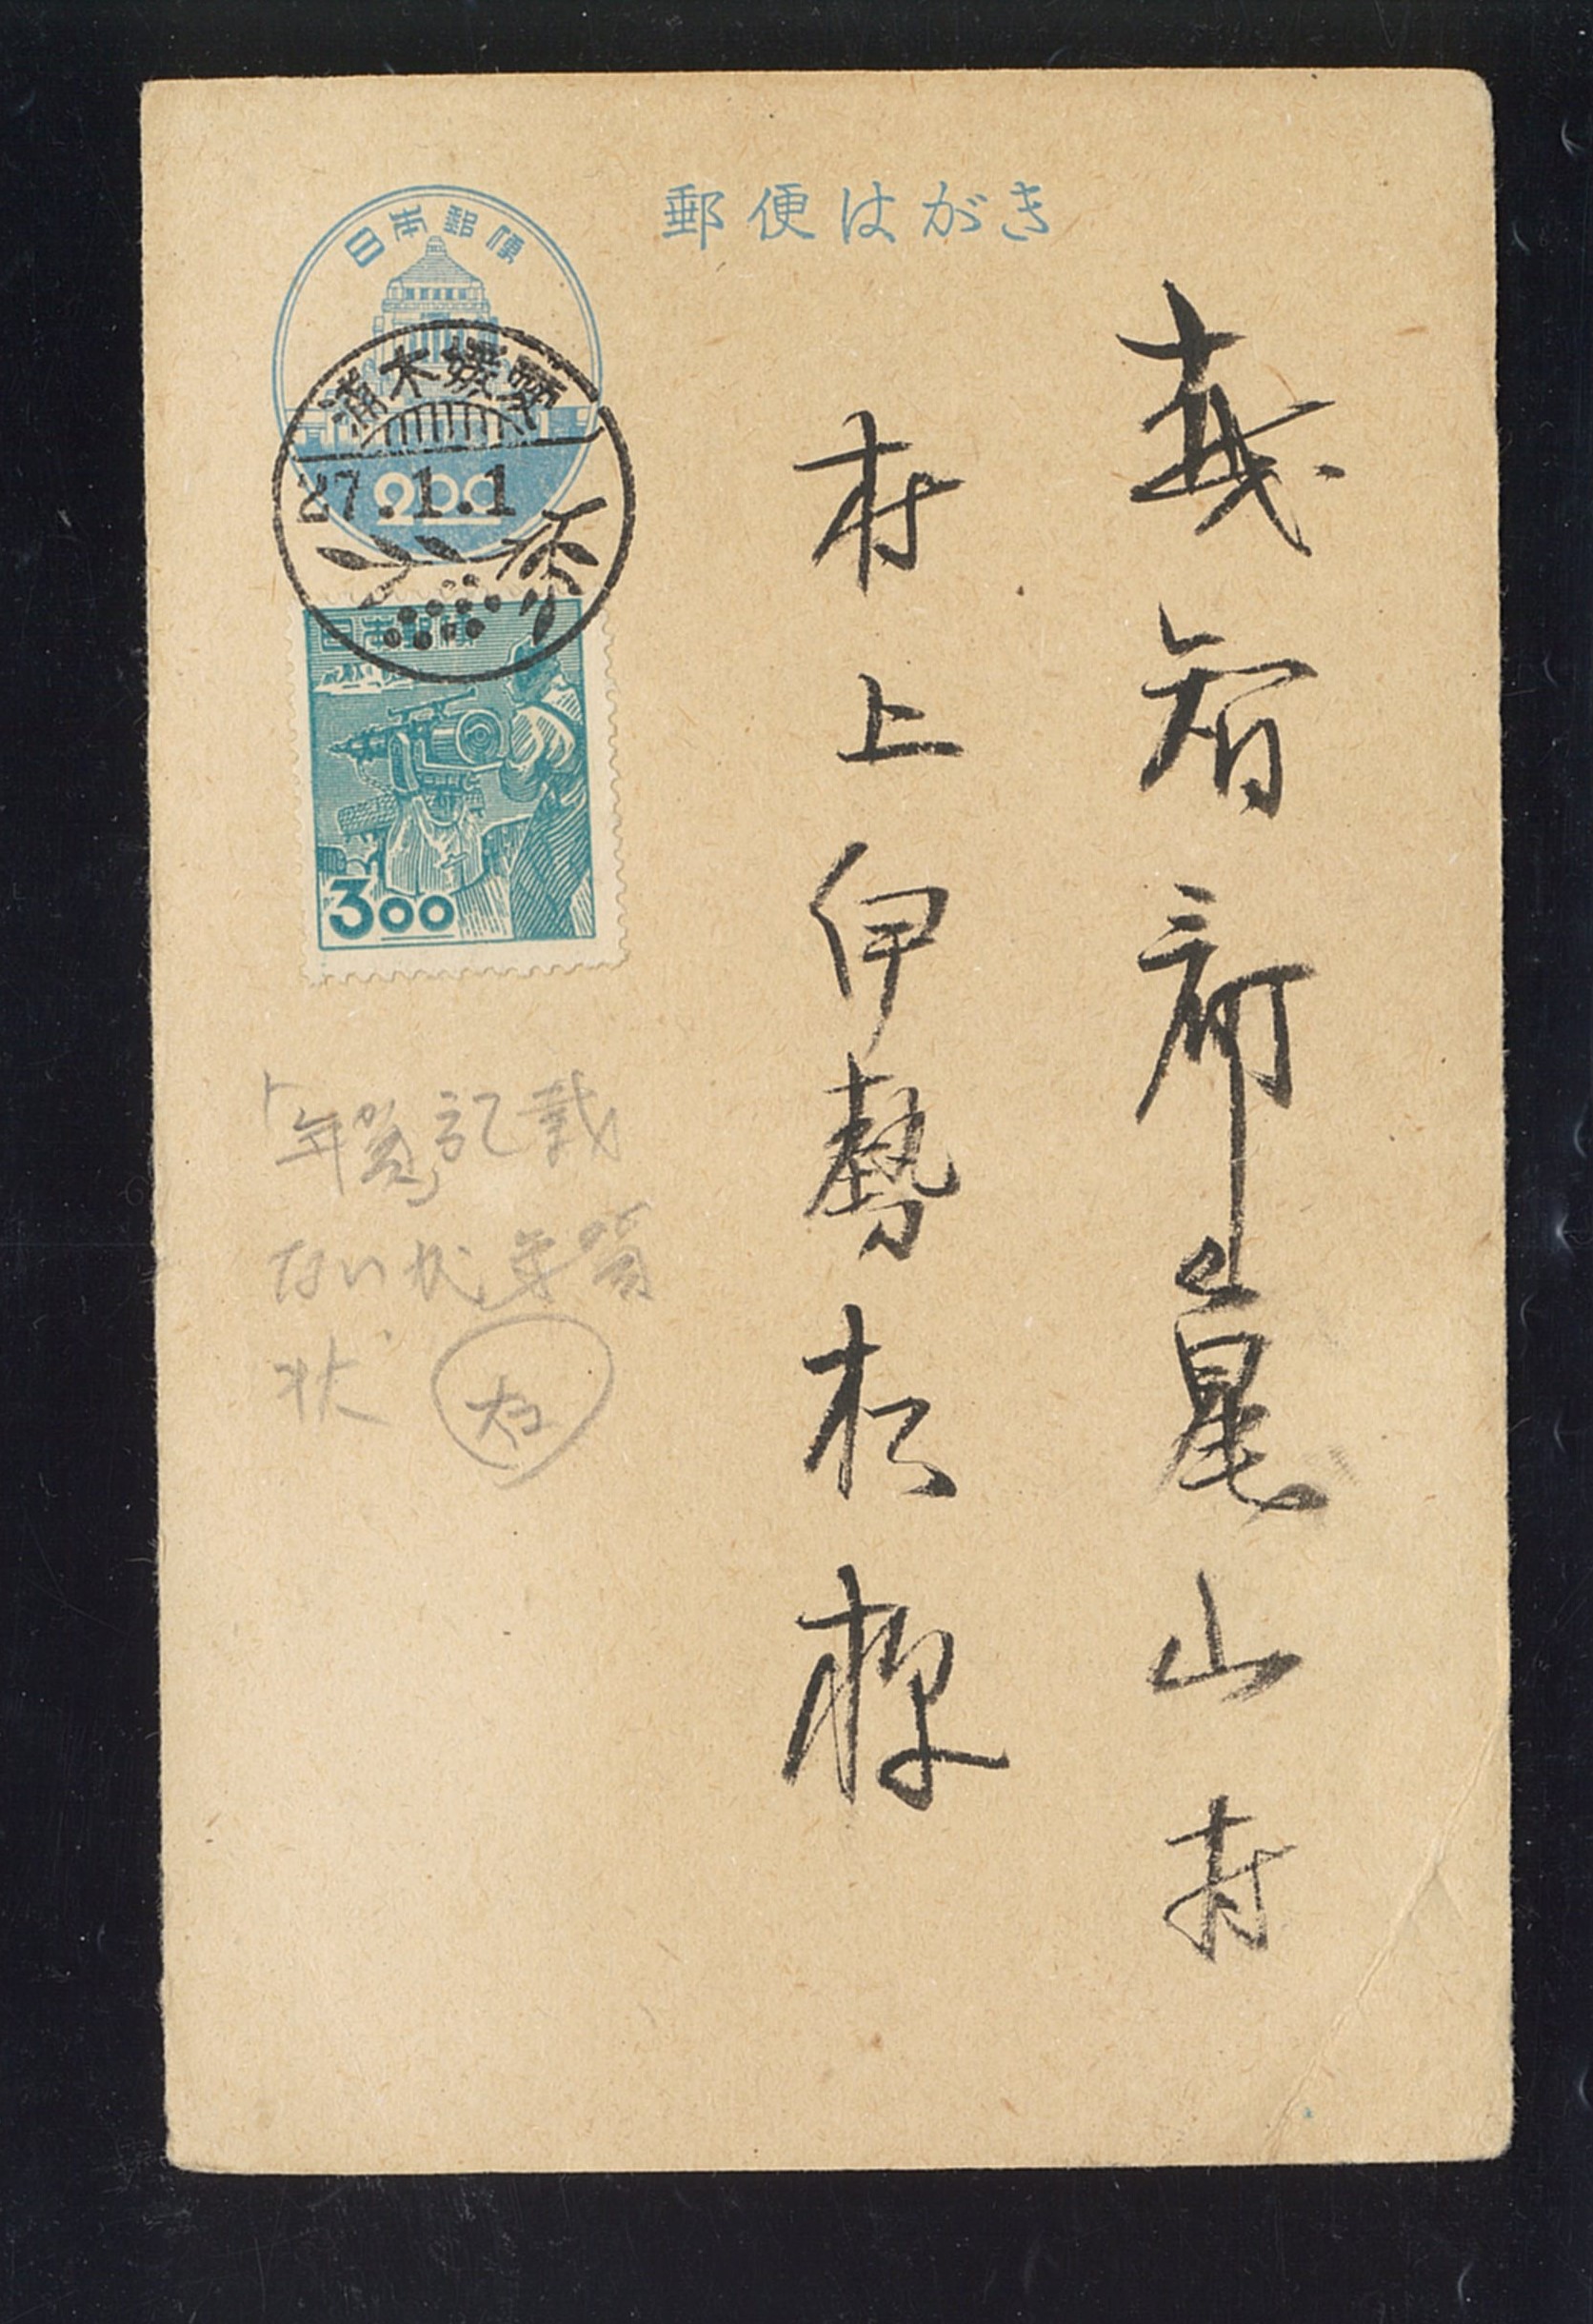 郵便はがき
日本郵便
2.00
愛媛木浦
27.1.1
日本郵便
3.00
越智郡亀山村
村上伊勢松様
「年賀」記載
ないが年賀
状